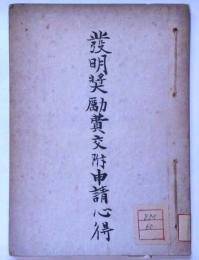 發明奬勵費交附申請心得